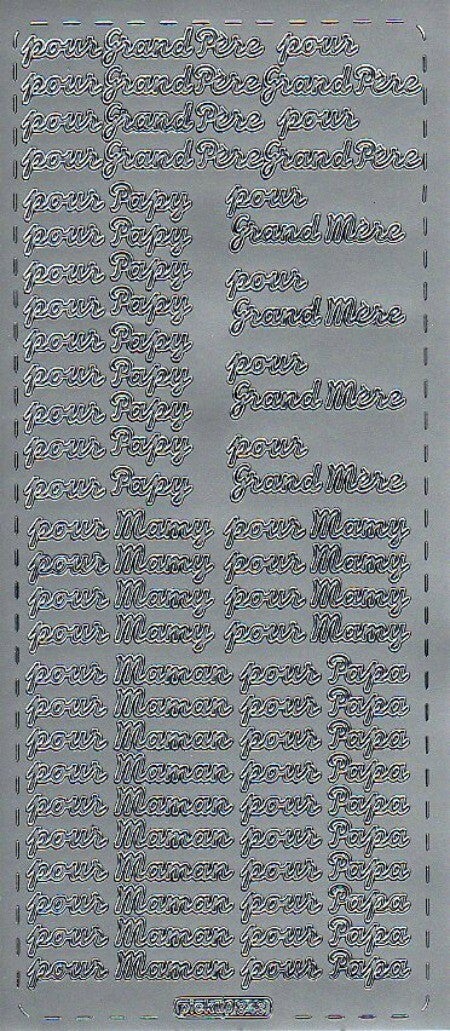 pour Grand Père pour
pour Grand Père Grand Père
pour Grand Père pour
pour Grand Père Grand Père
pour Papy
pour Papy
pour Papy
pour Papy
pour Papy
pour Papy
pour Papy
pour Papy
pour Papy
pour
Grand Mère
pour
Grand Mère
pour
Grand Mère
pour
Grand Mère
pour Mamy pour Mamy
pour Mamy pour Mamy
pour Mamy pour Mamy
pour Mamy pour Mamy
pour Maman pour Papa
pour Maman pour Papa
pour Maman pour Papa
pour Maman pour Papa
pour Maman pour Papa
pour Maman pour Papa
pour Maman pour Papa
pour Maman pour Papa
pour Maman pour Papa
pour Maman pour Papa